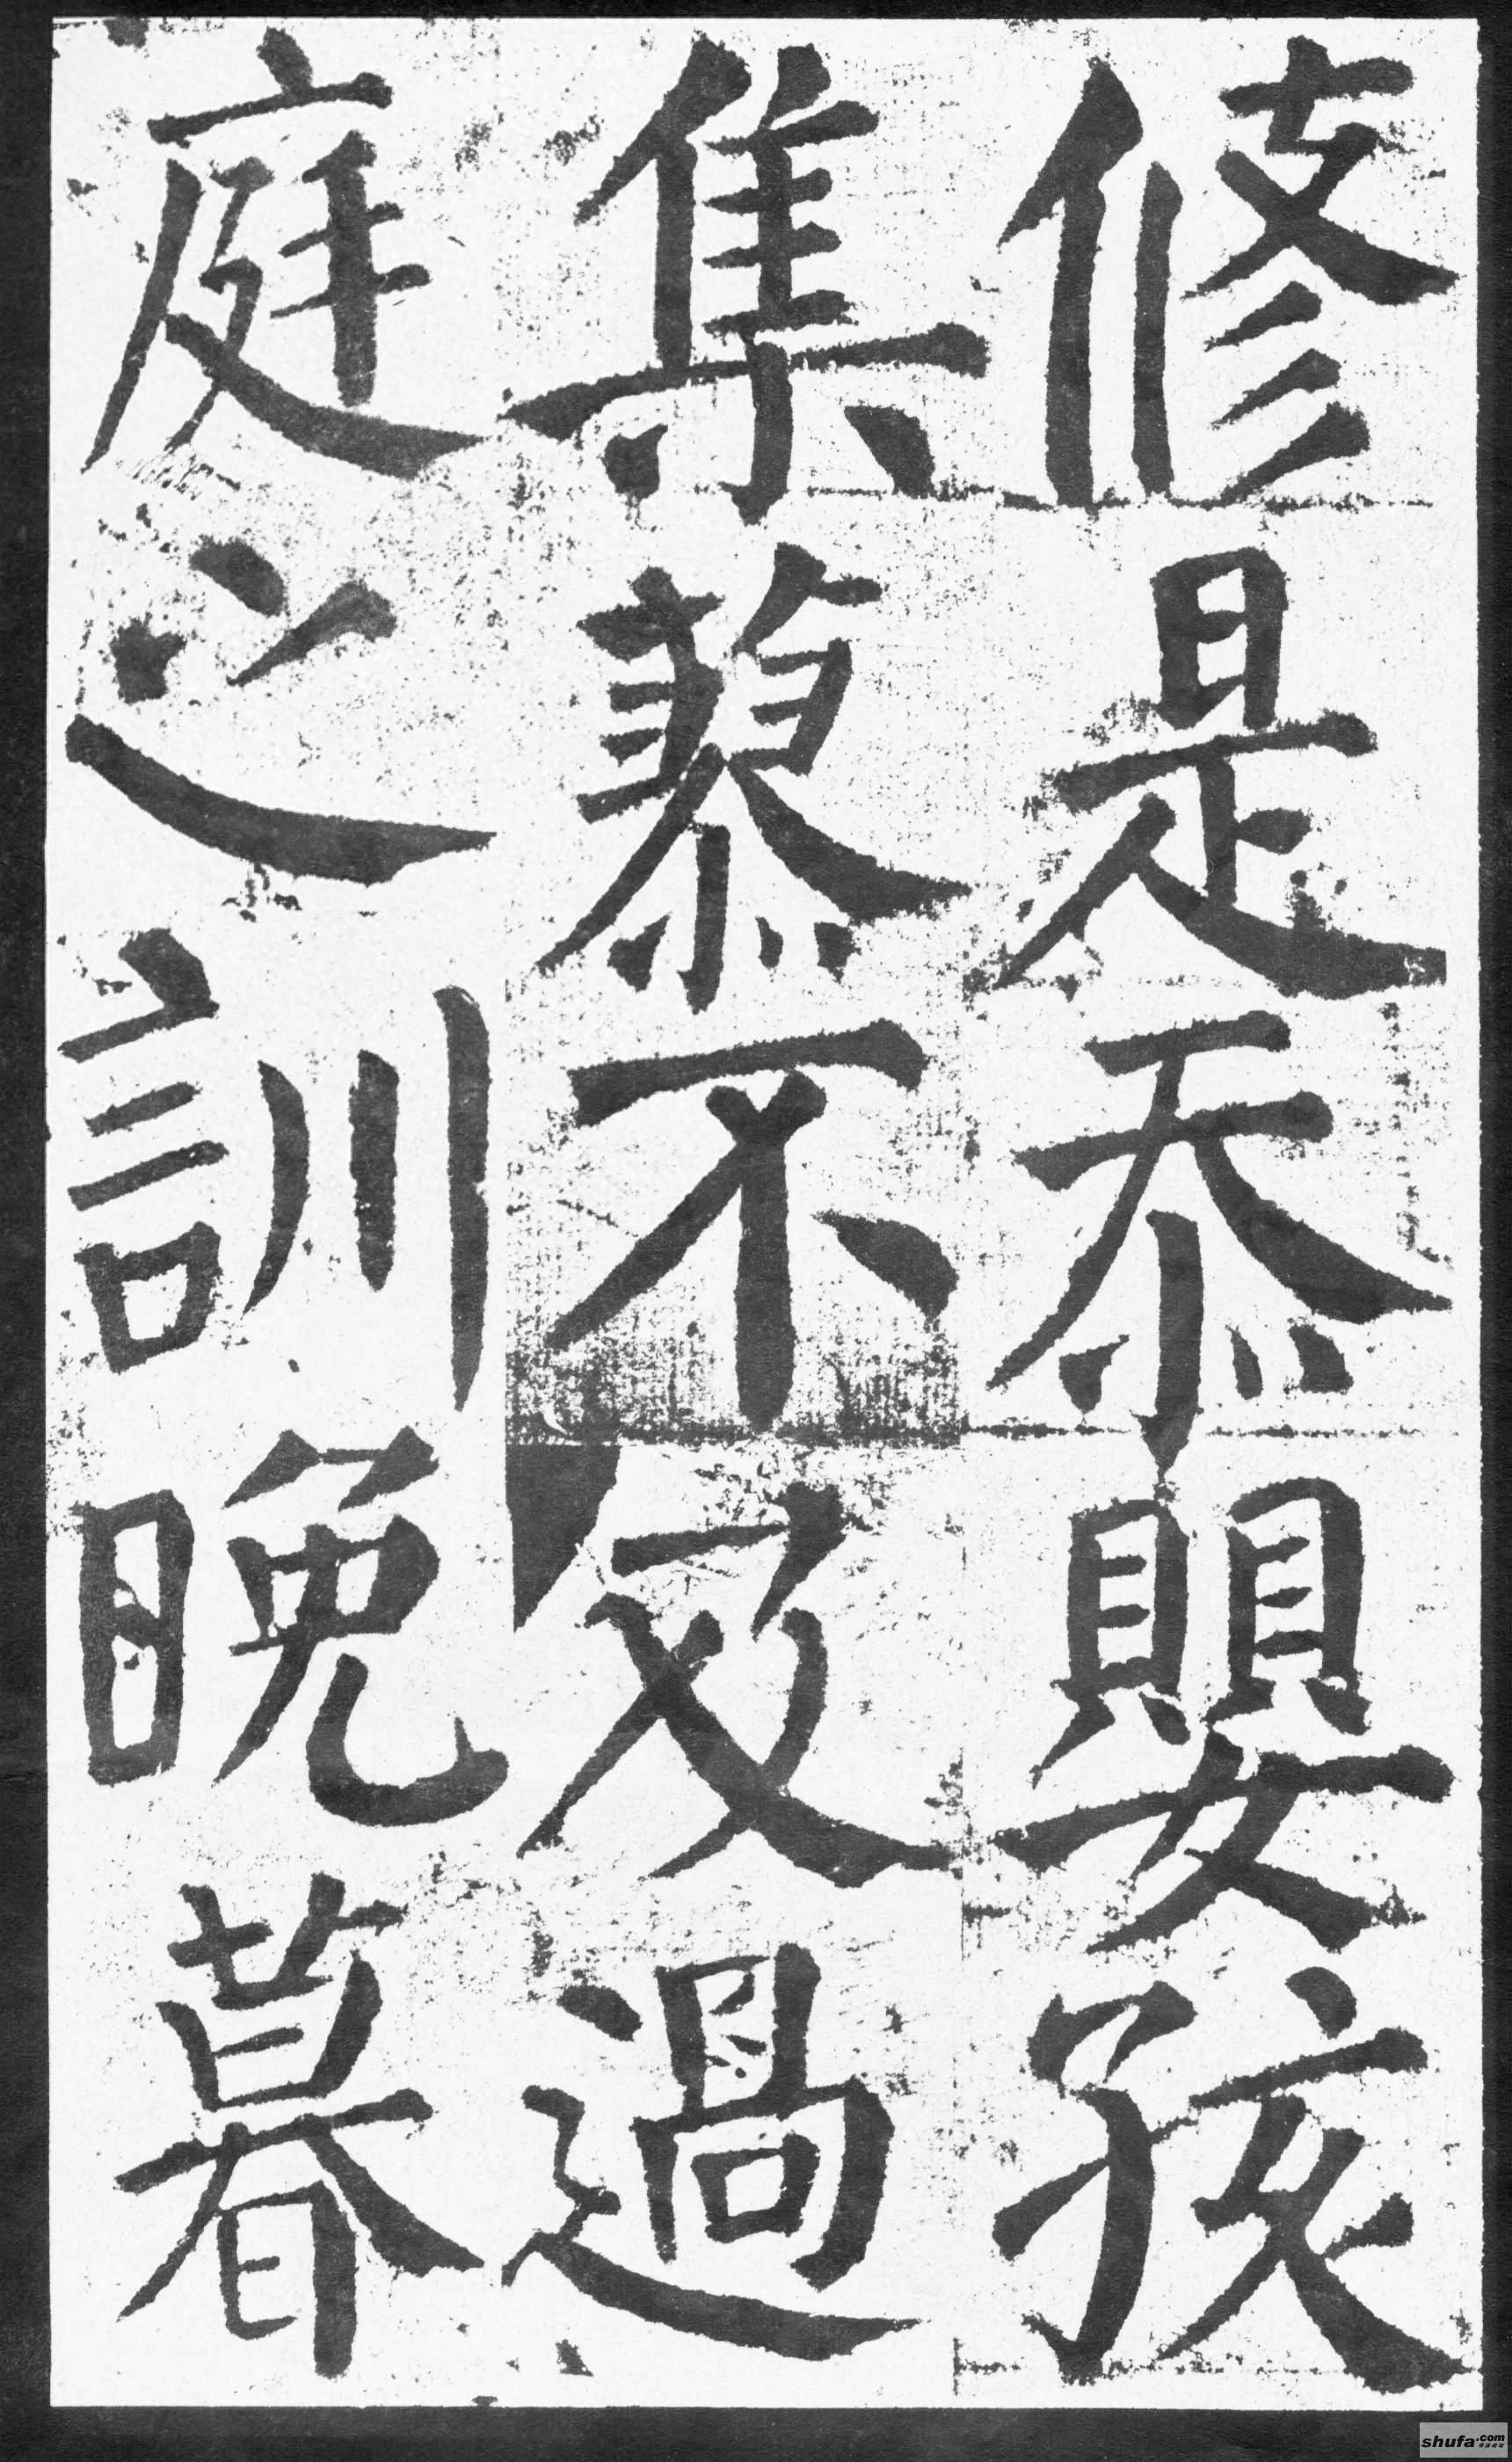 修是忝賏女孩
集慕不及過
庭之訓晚暮
shufa.com